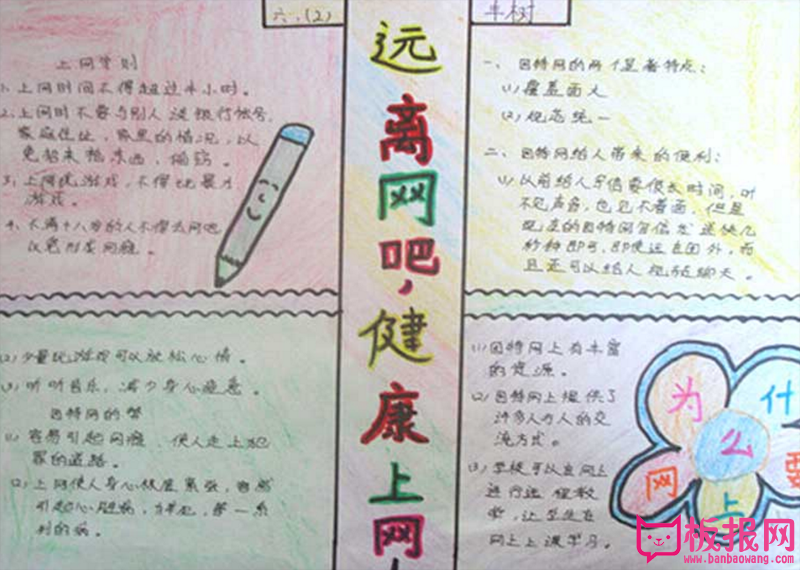 六.(2)
上网守则
1、上网时间不得超过半小时。
2、上网时不要与别人谈银行帐号,
家庭住址,家里的情况,以
免招来抢东西,偷窃。
3、上网玩游戏,不得玩暴力
游戏。
4、不满十八岁的人不得去网吧
以免形成网瘾。
(2) 少量玩游戏可以放松心情。
(3) 听听音乐,减少身心疲惫。
因特网的弊
(1) 容易引起网瘾,使人走上犯
罪的道路。
(2) 上网使人身心极度紧张,容易
引起心脏病,
列的病。
远离网吧,健康上网
一、因特网的两个显著特点:
(1) 覆盖面大
(2) 规范统一
二、因特网给人带来的便利:
(1) 以前给人写信要很长时间,听
不见声音,也见不着面,但是
现在的因特网写信发送快几
秒种即可,即使远在国外,而
且还可以给人视频聊天。
(1) 因特网上有丰富
的资源。
(2) 因特网上提供了
许多人与人的交
流方式。
(3) 学校可以在网上
进行远程教
学,让学生在
网上上课学习。
为什
么要
上网
板报网
www.banbaowang.com